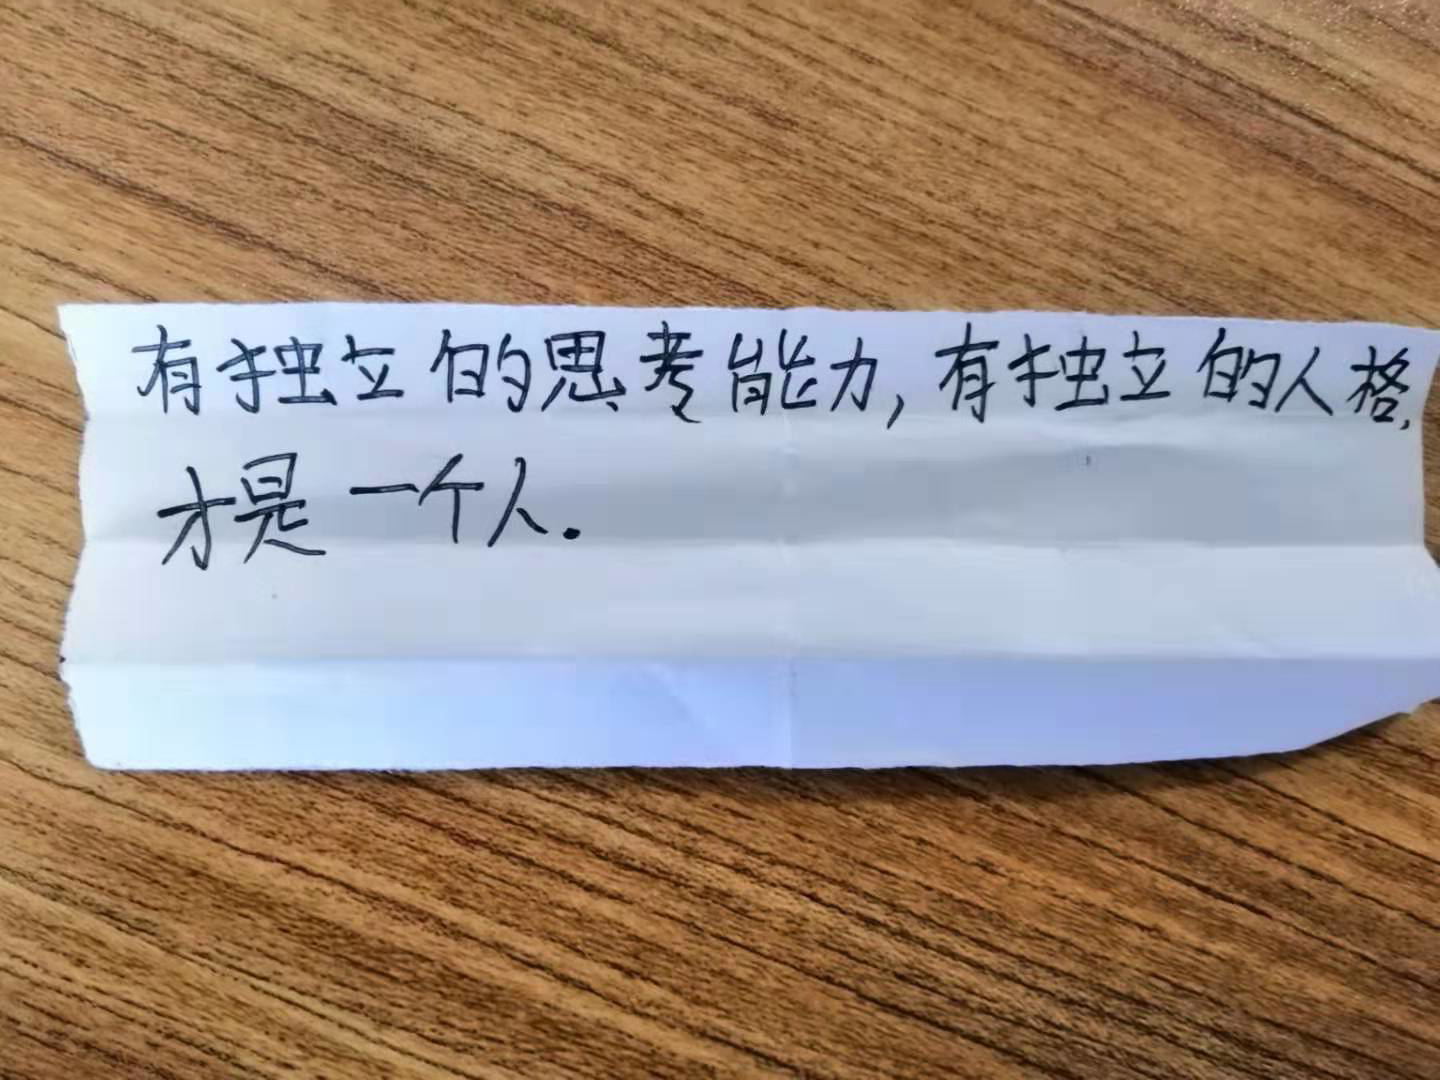 有独立的思考能力,有独立的人格,
才是一个人.